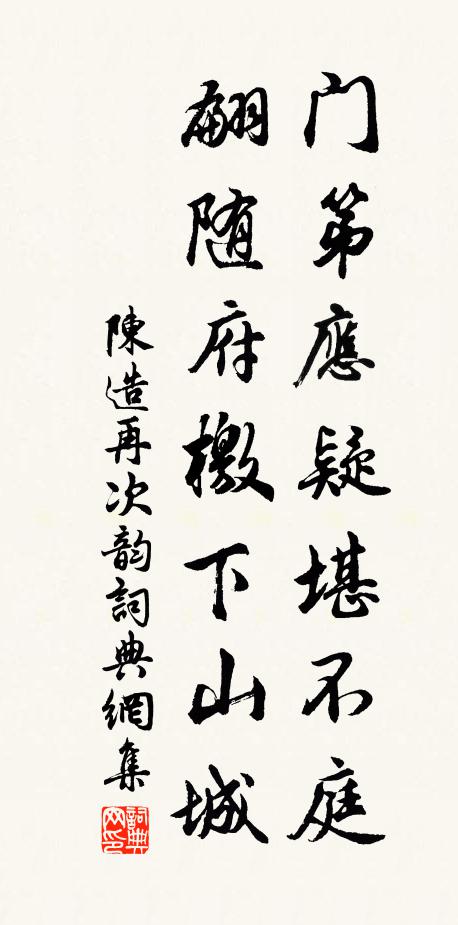 门第應疑堪不庭
翩随府檄下山城
陳造再次韵詞典網集
詞典网印